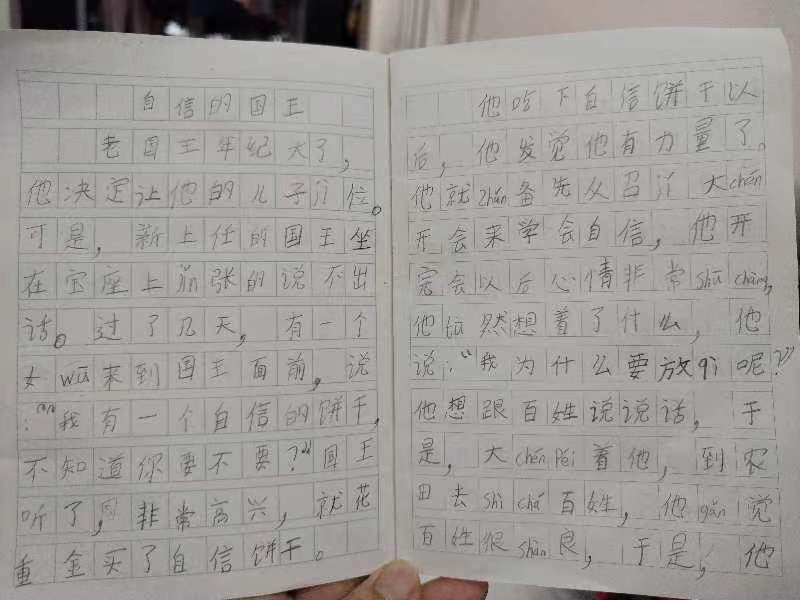 自信的国王
老国王年纪大了，
他决定让他的儿子让位。
可是，新上任的国王坐
在宝座上紧张的说不出
话。过了几天，有一个
女wū来到国王面前，说
：“我有一个自信的饼干，
不知道你要不要？”国王
听了，非常高兴，就花
重金买了自信饼干。
他吃下自信饼干以
后，他发觉他有力量了。
他就zhǔn备先从召 大chén
开会来学会自信，他开
完会以后心情非常shū chàng，
他tū然想着了什么，他
说：“我为什么要放qì呢？”
他想跟百姓说说话，于
是，大chén péi着他，到农
田去shì chá百姓，他gǎn觉
百姓很shàn良，于是，他